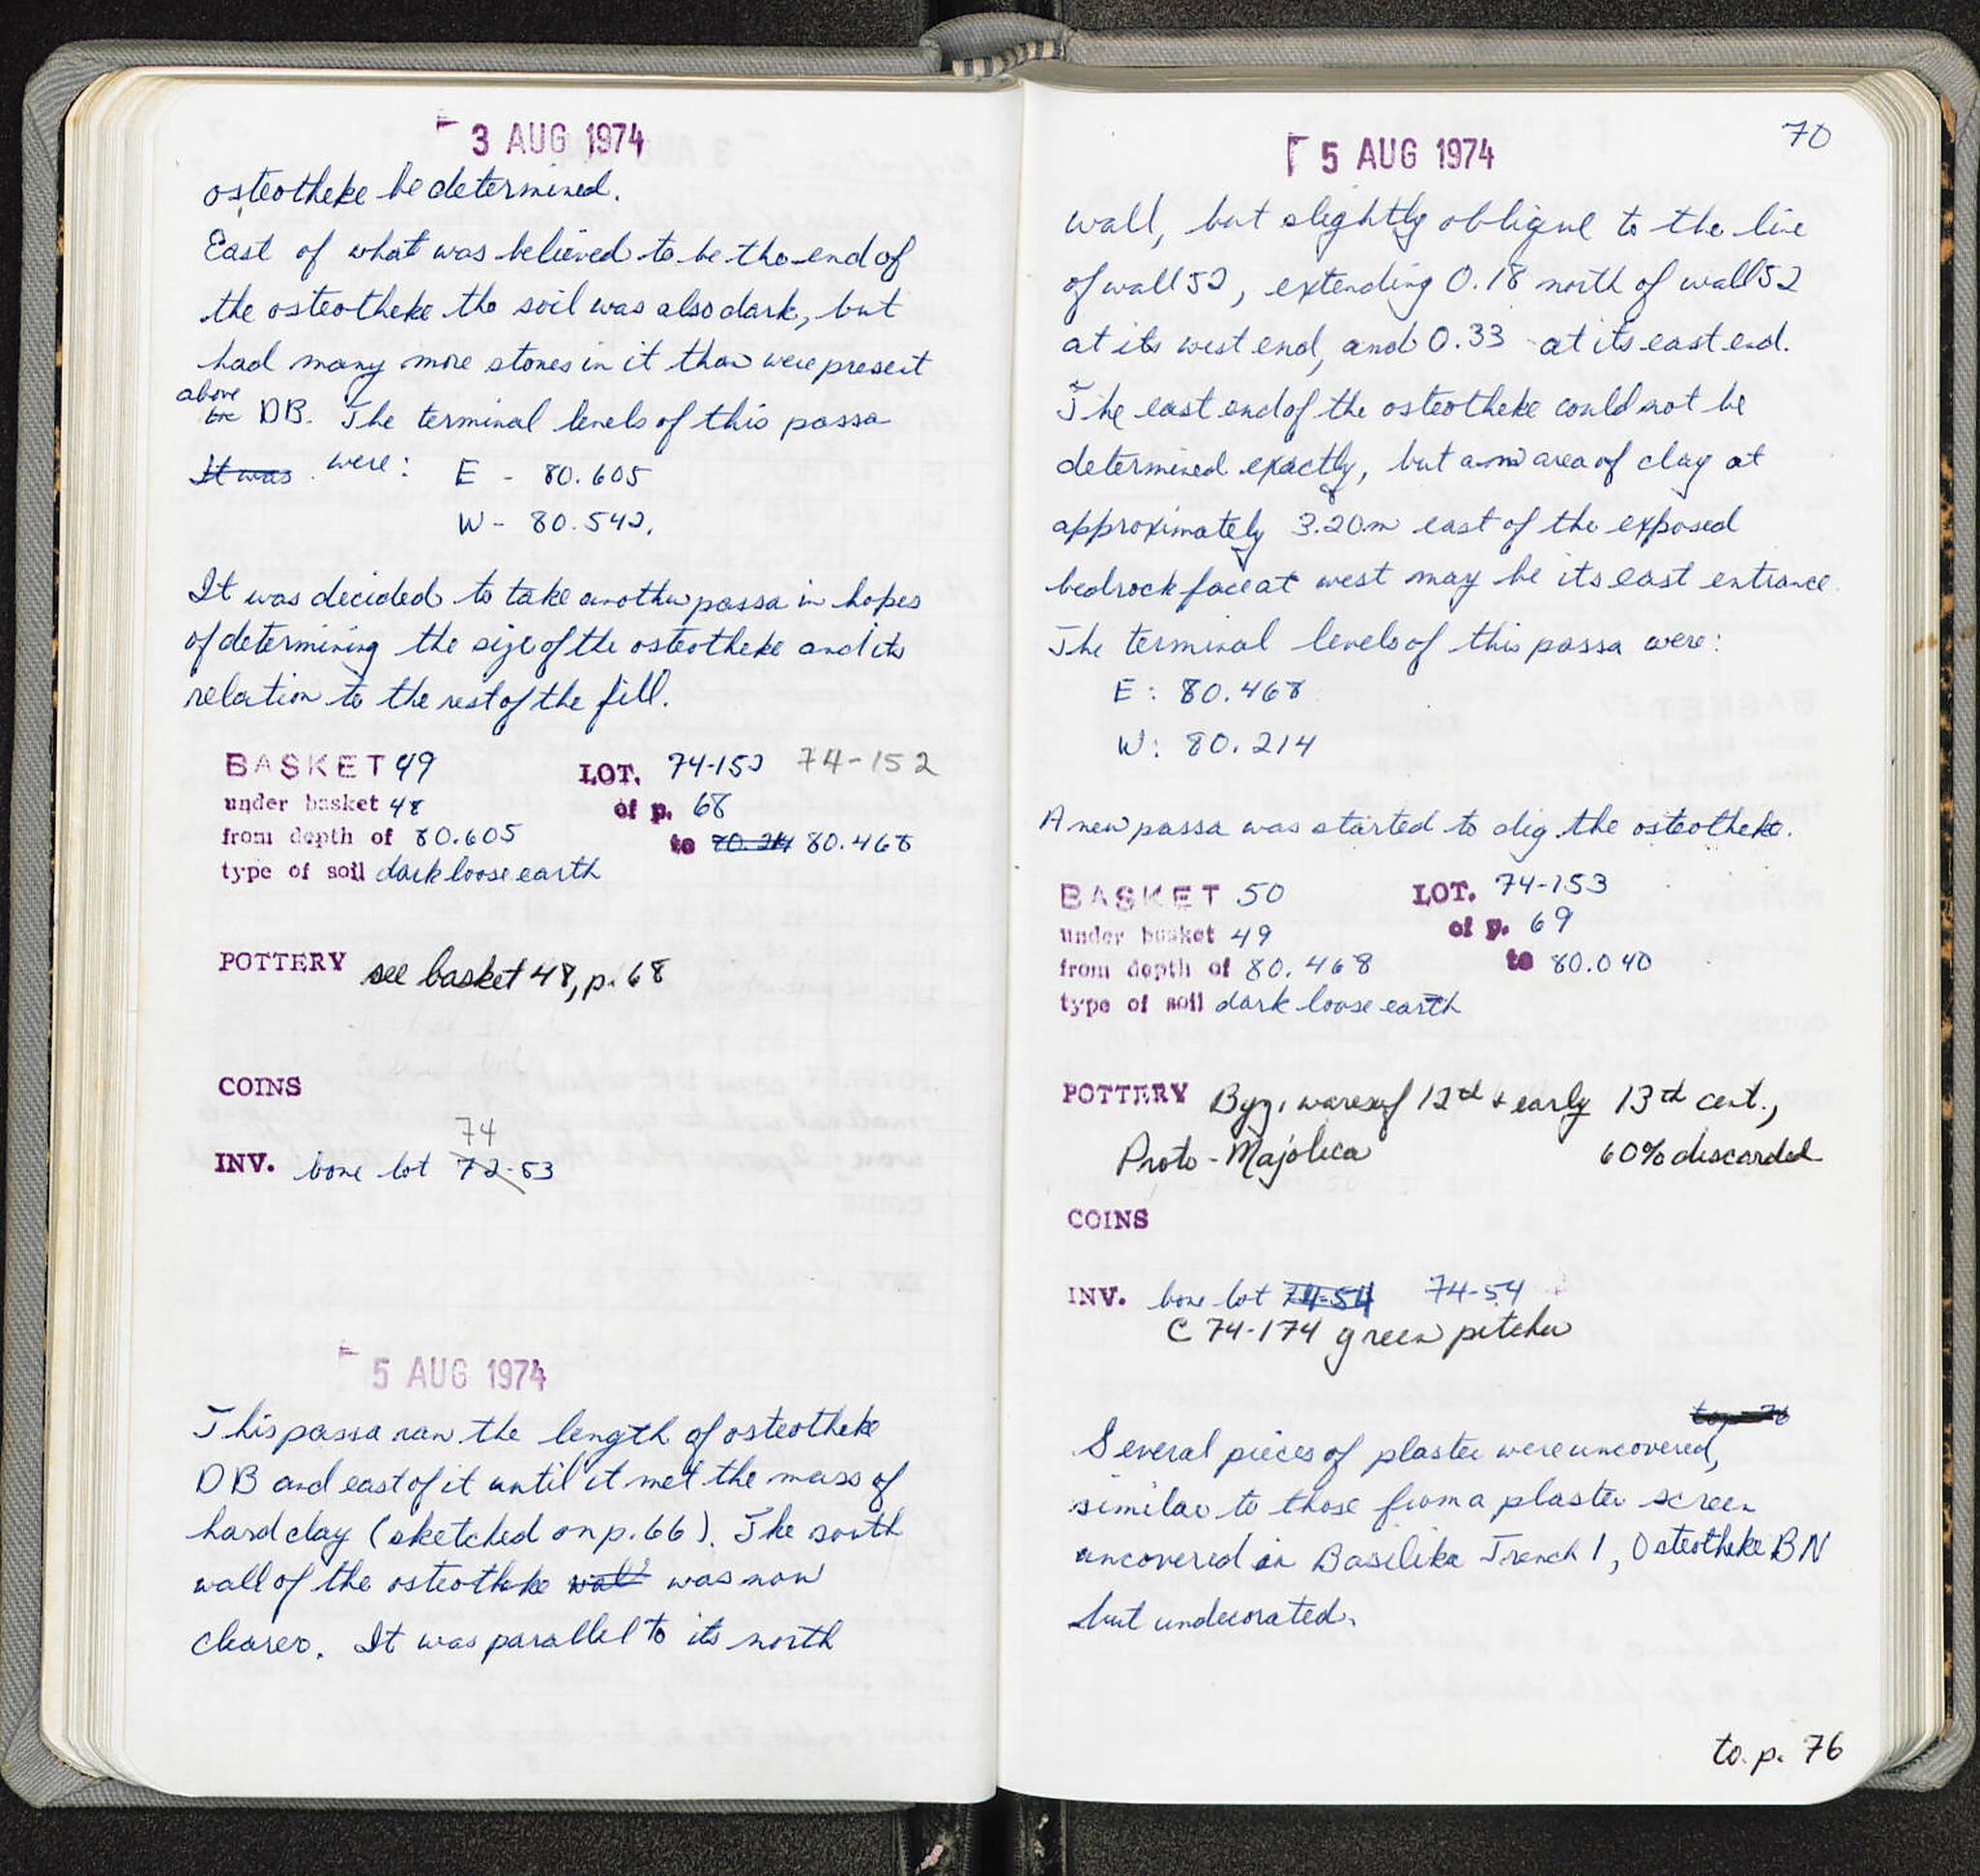 3 AUG 1974
osteotheke be determined.
East of what was believed to be the end of
the osteotheke the soil was also dark, but
had many more stones in it than were present
above
DB. The terminal levels of this passa
It was were: E - 80.605
W - 80.542.
It was decided to take another passa in hopes
of determining the size of the osteotheke and its
relation to the rest of the fill.
BASKET 49 LOT. 74-152 74-152
under basket 48 of p. 68
from depth of 80.605 to 80.214 80.468
type of soil dark loose earth
POTTERY see basket 48, p. 68
COINS
74
INV. bone lot 72-53
5 AUG 1974
This passa ran the length of osteotheke
DB and east of it until it met the mass of
hard clay (sketched on p. 66). The south
wall of the osteotheke wall was now
clearer. It was parallel to its north
70
5 AUG 1974
wall, but slightly oblique to the line
of wall 52, extending 0.18 north of wall 52
at its west end, and 0.33 at its east end.
The east end of the osteotheke could not be
determined exactly, but an area of clay at
approximately 3.20m east of the exposed
bedrock face at west may be its east entrance.
The terminal levels of this passa were:
E: 80.468
W: 80.214
A new passa was started to dig the osteotheke.
BASKET 50 LOT. 74-153
under basket 49 of p. 69
from depth of 80.468 to 80.040
type of soil dark loose earth
POTTERY Byz. wares of 12th & early 13th cent.,
Proto-Majolica 60% discarded
COINS
INV. bone lot 74-54 74-54
C 74-174 green pitcher
to p. 76
Several pieces of plaster were uncovered,
similar to those from a plaster screen
uncovered in Basilike Trench 1, Osteotheke BN
but undecorated.
to. p. 76